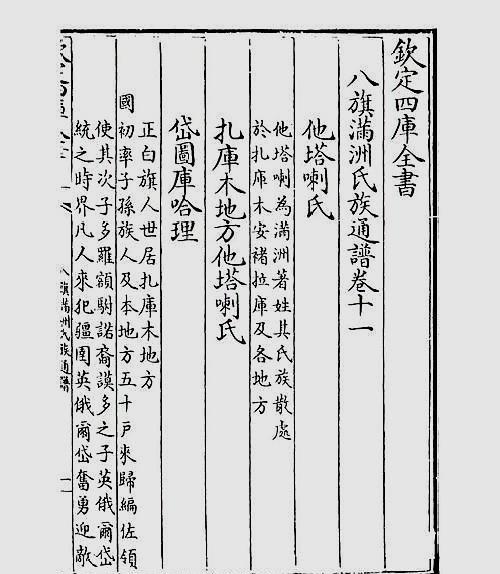 欽定四庫全書
八旗滿洲氏族通譜卷十一
他塔喇氏
他塔喇為滿洲著姓其氏族散處
於扎庫木安褚拉庫及各地方
扎庫木地方他塔喇氏
岱圖庫哈理
正白旗人世居扎庫木地方
國初率子孫族人及本地方五十戶來歸編佐領
使其次子多羅額駙諾裔謨多之子英俄爾岱
統之時界凡人來犯疆圉英俄爾岱奮勇迎敵
八旗滿洲氏族通譜